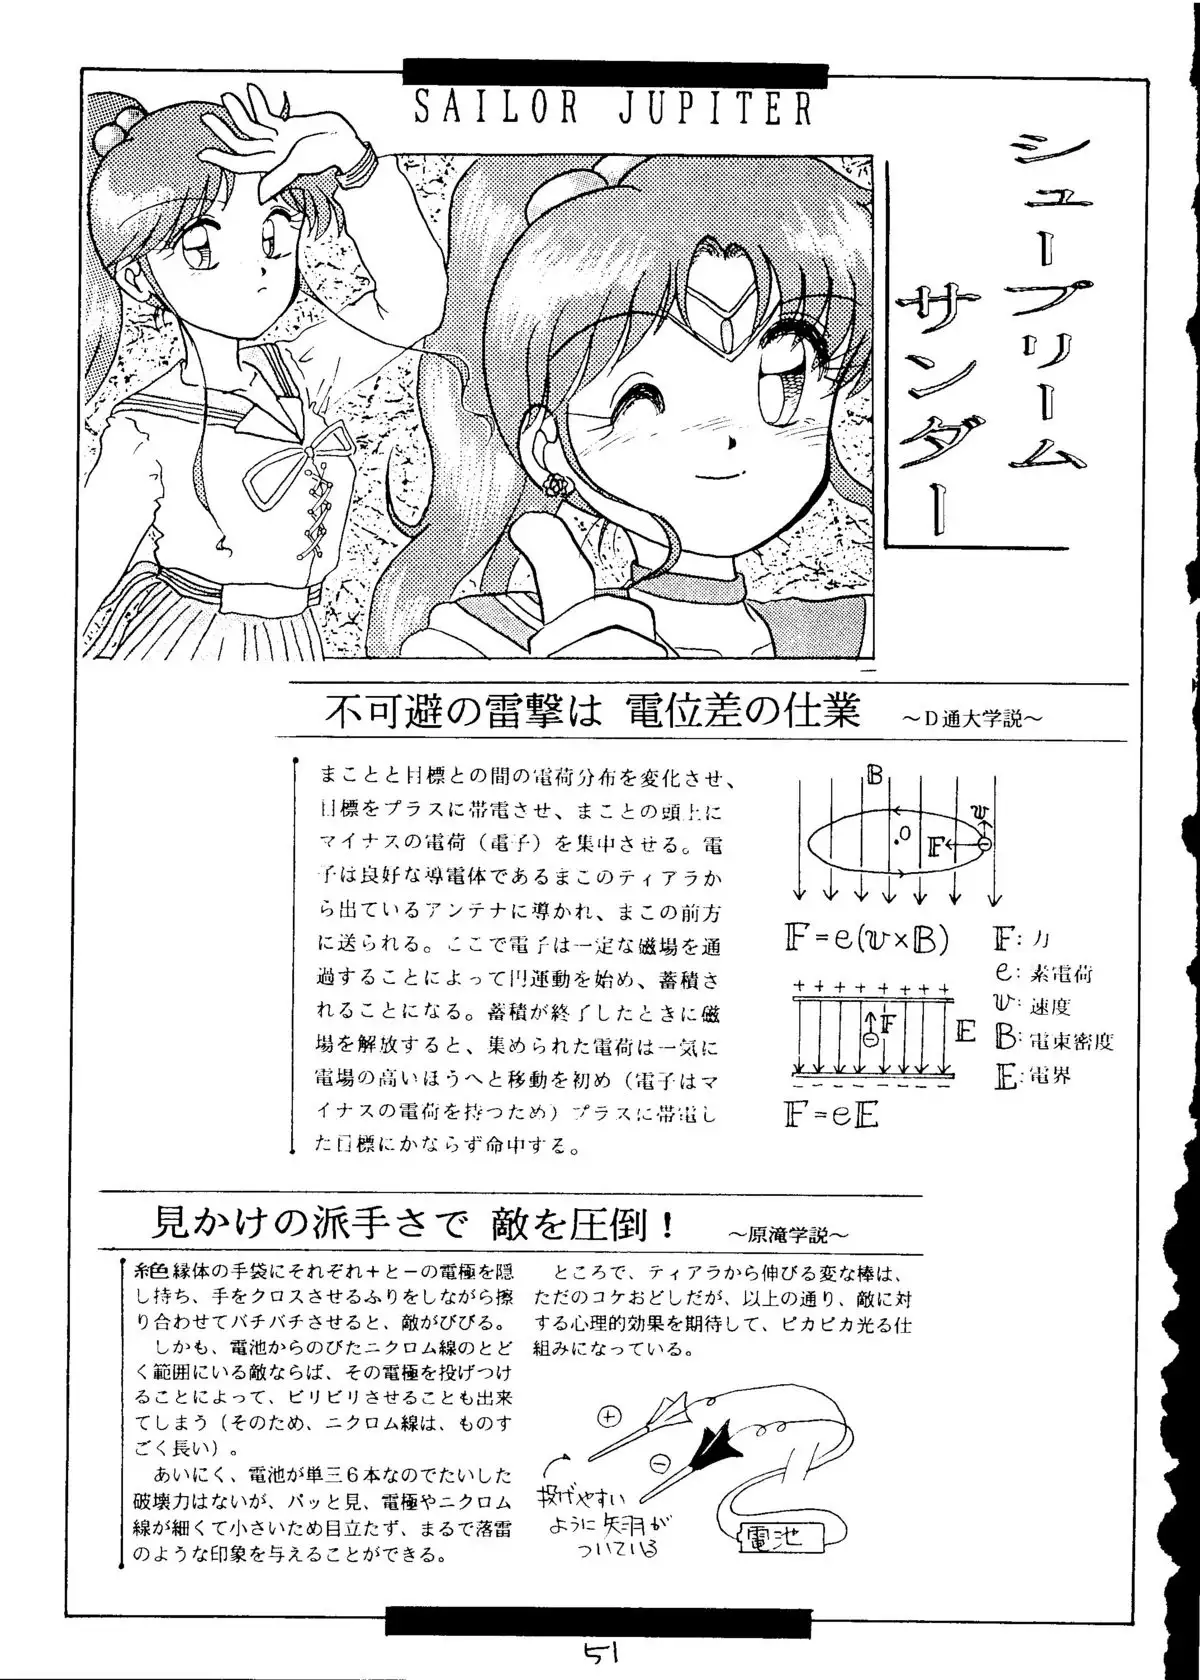 SAILOR JUPITER
シュープリーム
サンダー
不可避の雷撃は 電位差の仕業 ～D通大学説～
まことと目標との間の電荷分布を変化させ、
目標をプラスに帯電させ、まことの頭上に
マイナスの電荷（電子）を集中させる。電
子は良好な導電体であるまこのティアラか
ら出ているアンテナに導かれ、まこの前方
に送られる。ここで電子は一定な磁場を通
過することによって円運動を始め、蓄積さ
れることになる。蓄積が終了したときに磁
場を解放すると、集められた電荷は一気に
電場の高いほうへと移動を初め（電子はマ
イナスの電荷を持つため）プラスに帯電し
た目標にかならず命中する。
B
v
O
F
F=e(v×B)
F:力
e:素電荷
v:速度
B:電束密度
E:電界
+ + + + + + + +
F
E
F=eE
見かけの派手さで 敵を圧倒！ ～原滝学説～
絶縁体の手袋にそれぞれ＋と－の電極を隠
し持ち、手をクロスさせるふりをしながら擦
り合わせてバチバチさせると、敵がびびる。
しかも、電池からのびたニクロム線のとど
く範囲にいる敵ならば、その電極を投げつけ
ることによって、ビリビリさせることも出来
てしまう（そのため、ニクロム線は、ものす
ごく長い）。
あいにく、電池が単三６本なのでたいした
破壊力はないが、パッと見、電極やニクロム
線が細くて小さいため目立たず、まるで落雷
のような印象を与えることができる。
ところで、ティアラから伸びる変な棒は、
ただのコケおどしだが、以上の通り、敵に対
する心理的効果を期待して、ピカピカ光る仕
組みになっている。
⊕
⊖
投げやすい
ように矢羽が
ついている
電池
51